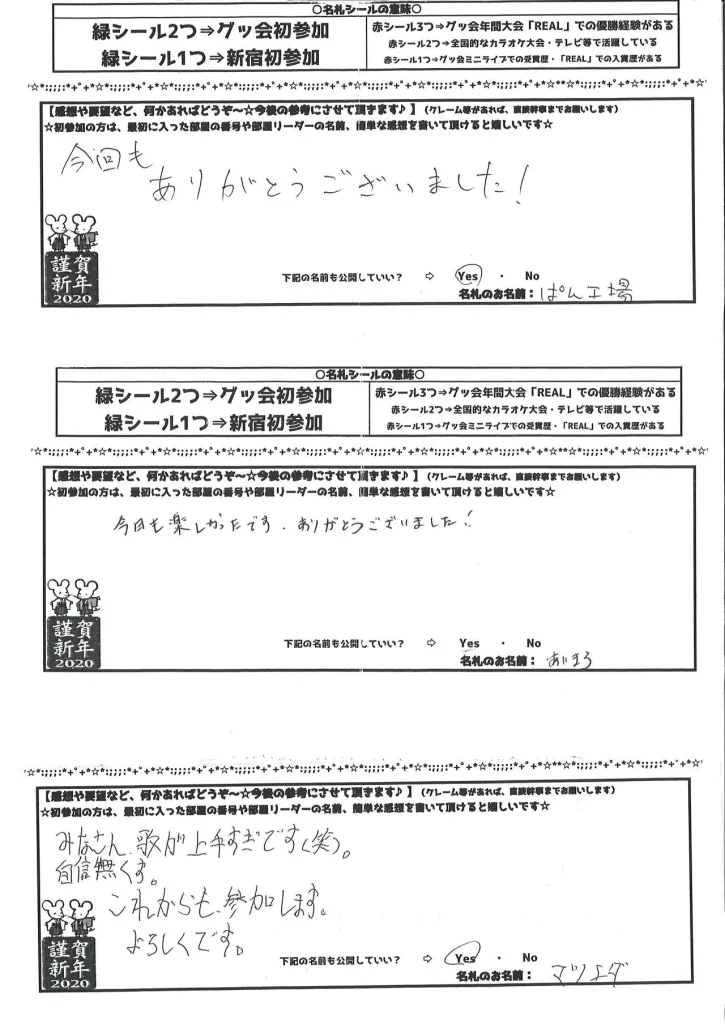 ○名札シールの意味○
緑シール2つ⇒グッ会初参加
緑シール1つ⇒新宿初参加
赤シール3つ⇒グッ会年間大会「REAL」での優勝経験がある
赤シール2つ⇒全国的なカラオケ大会・テレビ等で活躍している
赤シール1つ⇒グッ会ミニライブでの受賞歴・「REAL」での入賞歴がある
【感想や要望など、何かあればどうぞ～☆今後の参考にさせて頂きます♪ 】（クレーム等があれば、直接幹事までお願いします）
☆初参加の方は、最初に入った部屋の番号や部屋リーダーの名前、簡単な感想を書いて頂けると嬉しいです☆
今回も
ありがとうございました！
謹賀
新年
2020
下記の名前も公開していい？ ⇨ Yes ・ No
名札のお名前：ぱん工場
○名札シールの意味○
緑シール2つ⇒グッ会初参加
緑シール1つ⇒新宿初参加
赤シール3つ⇒グッ会年間大会「REAL」での優勝経験がある
赤シール2つ⇒全国的なカラオケ大会・テレビ等で活躍している
赤シール1つ⇒グッ会ミニライブでの受賞歴・「REAL」での入賞歴がある
【感想や要望など、何かあればどうぞ～☆今後の参考にさせて頂きます♪ 】（クレーム等があれば、直接幹事までお願いします）
☆初参加の方は、最初に入った部屋の番号や部屋リーダーの名前、簡単な感想を書いて頂けると嬉しいです☆
今日も楽しかったです．ありがとうございました！
謹賀
新年
2020
下記の名前も公開していい？ ⇨ Yes ・ No
名札のお名前：あいまろ
【感想や要望など、何かあればどうぞ～☆今後の参考にさせて頂きます♪ 】（クレーム等があれば、直接幹事までお願いします）
☆初参加の方は、最初に入った部屋の番号や部屋リーダーの名前、簡単な感想を書いて頂けると嬉しいです☆
みなさん、歌が上手すぎです(笑)。
自信無くす。
これからも、参加します。
よろしくです。
謹賀
新年
2020
下記の名前も公開していい？ ⇨ Yes ・ No
名札のお名前：マツエダ